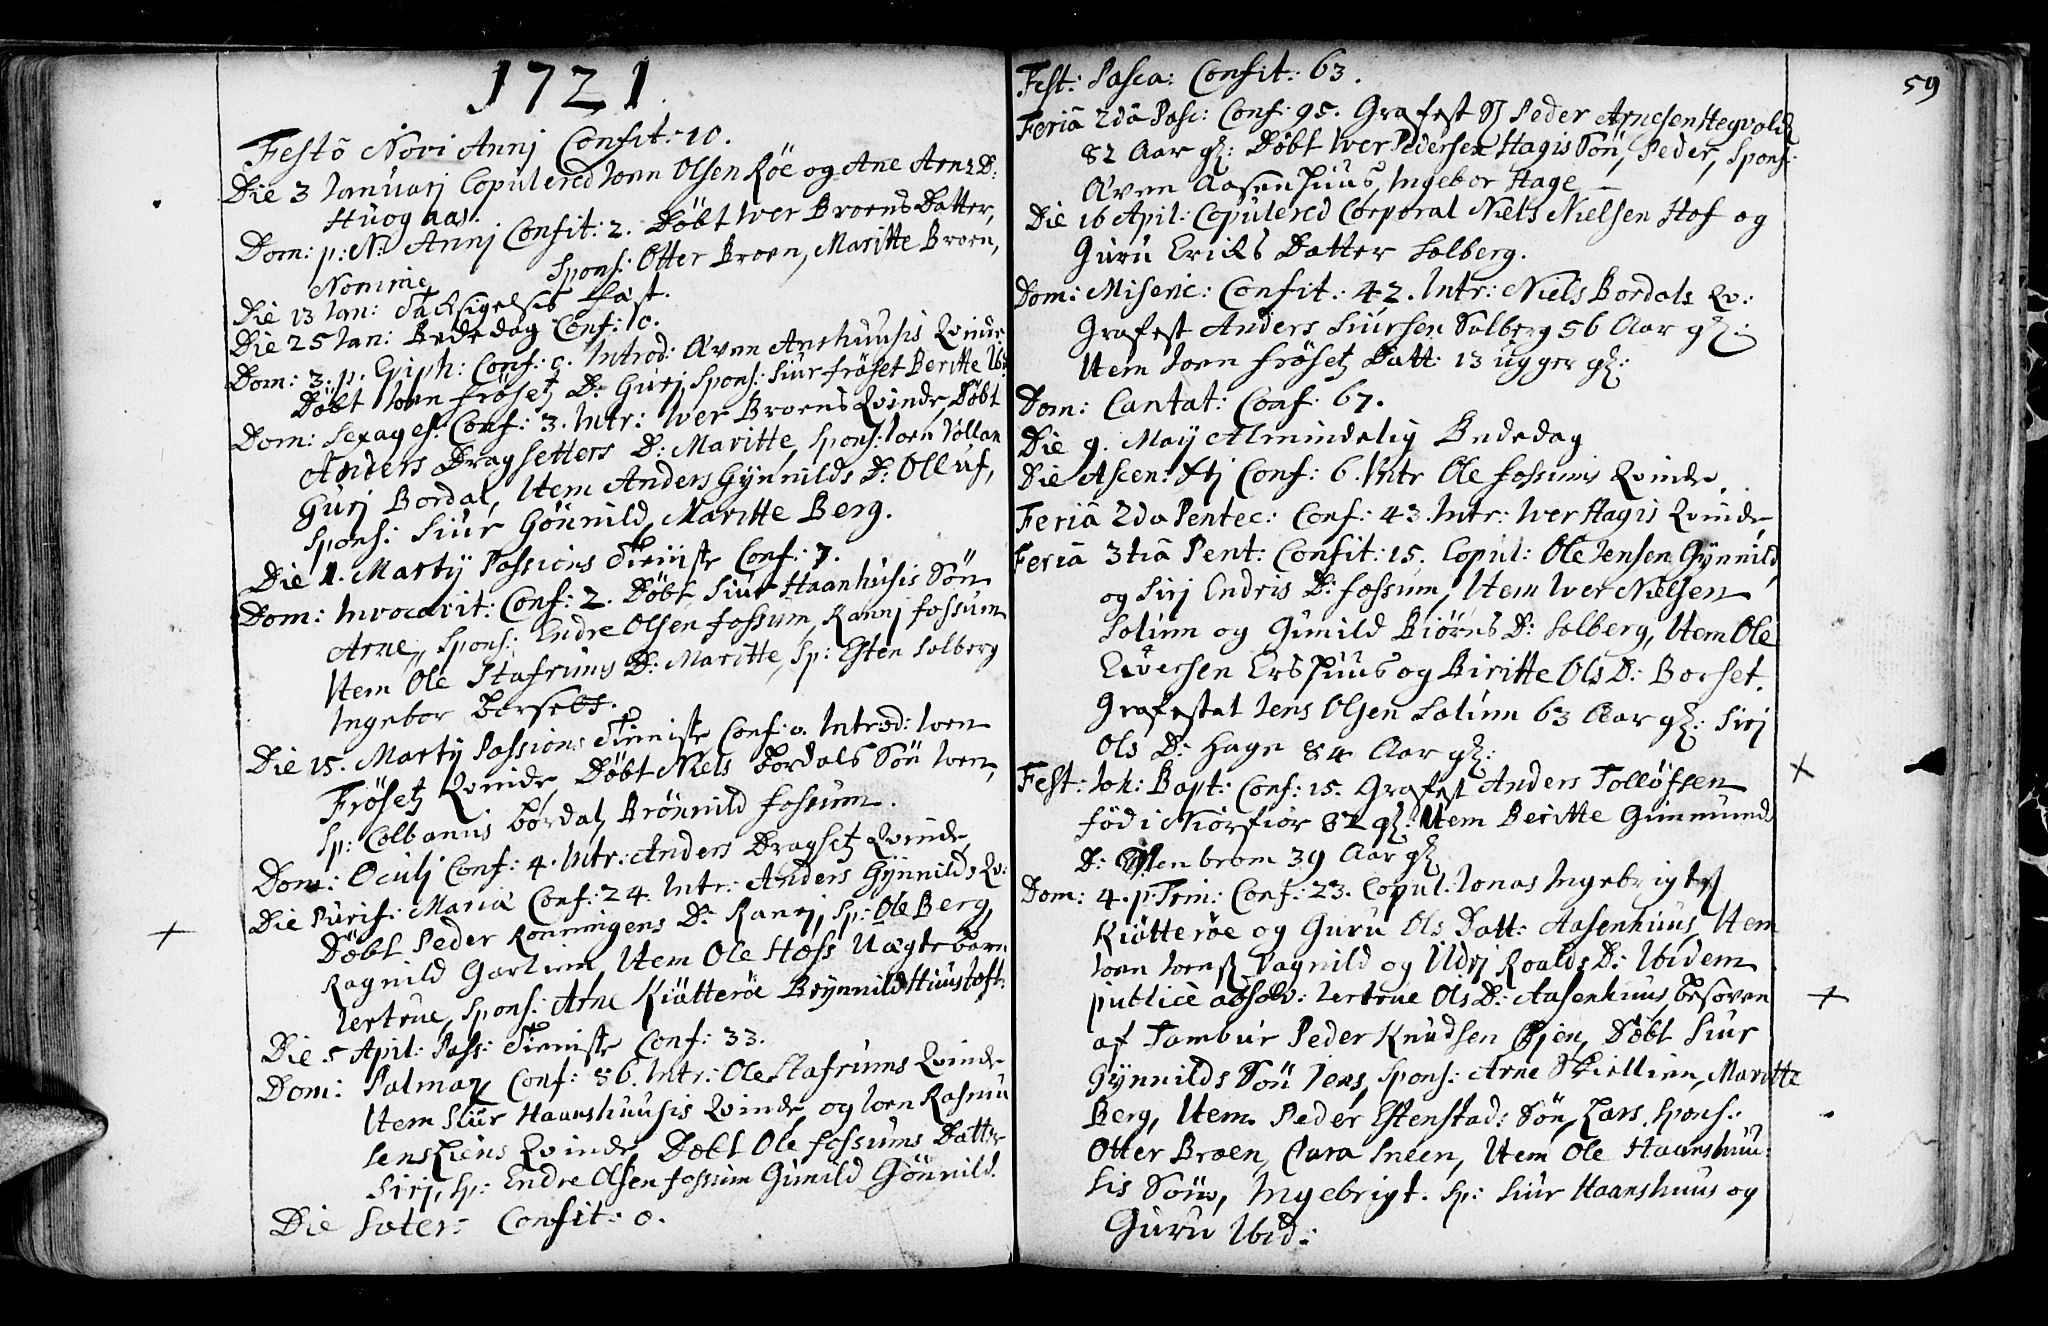 1721.
Festo Novi Annj Confit: 10.
Die 3 Januarj Copulered Joen Olsen Röe og Ane Arns D:
Huog aas.
Dom: p: N: Annj Confit: 2. Döbt Iver Broens Datter,
Nomine Spons: Otter Broen, Maritte Broen,
Die 13 Jan: Tacksigelses Fæst.
Die 25 Jan: Bededag Conf: 10.
Dom: 3. p. Epiph: Conf: 0. Introd: Even Aashuusis Qvinde
Döbt Joen Frösetz D: Gurj, Spons: Siur Fröset Beritte Ib:
Dom: Sexages: Conf: 3. Intr: Iver Broens Qvinde, Döbt
Anders Dragsetters D: Maritte, Spons: Joen Vollan
Gurj Bordal, Item Anders Gynnilds D: Olluf,
Spons: Siur Gönnild, Maritte Berg.
Die 1. Martij Passions Tieniste Conf: 7.
Dom: Invocavit: Conf: 2. Döbt Siur Haanhusis Sön
Arne, Spons: Endre Olsen Fossum, Rannj Fossum
Item Ole Stafrums D: Maritte, Sp: Esten Solberg
Ingebor Borseth.
Die 15. Martij Passions Tieniste Conf: 0. Introd: Joen
Frösetz Qvinde, Döbt Niels Bordals Sön Joen,
Sp: Colbanus Bordal, Brönnild Fossum.
Dom: Oculj Conf: 4. Intr: Anders Dragsetz Qvinde,
Die Purif: Maria Conf: 24. Intr: Anders Gynnilds Qv:
Döbt Peder Ronningens D: Ranej, Sp: Ole Berg,
Ragnild Garlien, Item Ole Hæss Uægte barn
Jertrue, Spons: Arne Kiötteröe Brynnild Huustoft:
Die 5 Apil: Pass: Tieniste Conf: 33.
Dom: Palmar Conf: 86. Intr: Ole Stafrums Qvinde
Item Siur Haanshuusis Qvinde, og Joen Rasmu
sens Liens Qvinde, Döbt Ole Fossums Datter
Sirj, Sp: Endre Olsen Fossum Gunild Gönnild.
Die Sater: Confit: 0.
59
Fest: Pasca: Confit: 63.
Feria 2da Pasc: Conf: 95. Grafest Peder Arnesen Hegvold
82 Aar gl: Döbt Iver Pedersen Hagis Sön, Peder, Spons:
Even Aasenhuus, Ingebor Hage
Die 16 Apil: Copulered Corporal Niels Nielsen Hof og
Guru Eriks Datter Solberg.
Dom: Miseric: Confit: 42. Intr: Niels Bordals Qv:
Grafest Anders Siursen Solberg 56 Aar gl:
Item Joen Frösetz Datt: 13 ugger gl:
Dom: Cantat: Conf: 67.
Die 9. May Almindelig Bededag
Die Ascen: Xtj Conf: 6. Intr Ole Fossums Qvinde.
Feria 2da Pentec: Conf: 43. Intr: Iver Hagis Qvinde
Feria 3tia Pent: Confit: 15. Copul: Ole Jensen Gynnild,
og Sirj Endris D: Fossum, Item Iver Nielsen
Solum og Gunild Biörns D: Solberg, Item Ole
Eversen Ershuus og Biritte Ols D: Borset.
Grafestat Jens Olsen Solum 63 Aar gl: Sirj
Ols D: Hage 84 Aar gl:
Fest: Joh: Bapt: Conf: 15. Grafest Anders Tollöfsen
föd i Niorfior 82 gl: Item Beritte Gunmunds
D: brom 39 Aar gl
Dom: 4. p: Trin: Conf: 23. Copul: Jonas Ingebrigts
Kiötteröe og Guru Ols Datt: Aasenhuus, Item
Joen og Ildrj Roalds D: Ibidem
publice absolv: Jertrue Ols D: Aasenhuus, besoven
af Tambur Peder Knudsen Öjen, Döbt Siur
Gynnilds Sön Jens, Spons: Arne Skiellien, Maritte
Berg, Item Peder Estenstad: Sön, Lars, Spons:
Otter Broen, Cara Sneen, Item Ole Haanshuu:
sis Sön, Ingebrigt. Sp: Siur Haanshuus og
Guru Ibid: